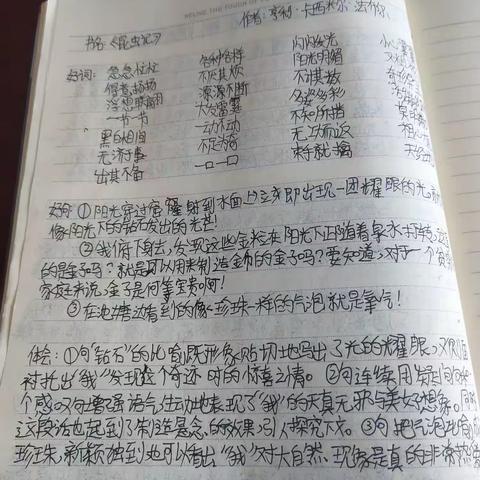 作者:亨利·卡西米尔·法布尔
书名《昆虫记》
好词:急急忙忙 各种各样 闪闪发光
得意扬扬 不厌其烦 阳光明媚
浮想联翩 源源不断 不慌其敌
一节一节 大发雷霆 多姿多彩
黑白相间 一动不动 不知所措
无济于事 不足为奇 无功而返
出其不备 一口一口 束手就擒
好句:①阳光穿过宿 射到水面上立刻即出现一团耀眼的光
像阳光下的钻石发出的光芒!
②我俯下身去,发现这些金粒在阳光下正随着泉水打转,这
的是金子吗?就是可以用来制造金币的金子吗?要知道,对于一个贫
家庭来说,金子是何等宝贵啊!
③在池塘边看到的像珍珠一样的气泡就是氧气!
体会:①句"钻石"的比喻既形象贴切地写出了光的耀眼,又
衬托出"我"发现这个奇迹时的惊喜之情。②句连续用疑问句
个感叹句增强语气,生动地表现了"我"的天真无邪与美好想象。同
这段话也起到了制造悬念的效果,引人探究下去。③句把气泡比
珍珠,新颖独到,也可以看出"我"对大自然、现象是真的非常热